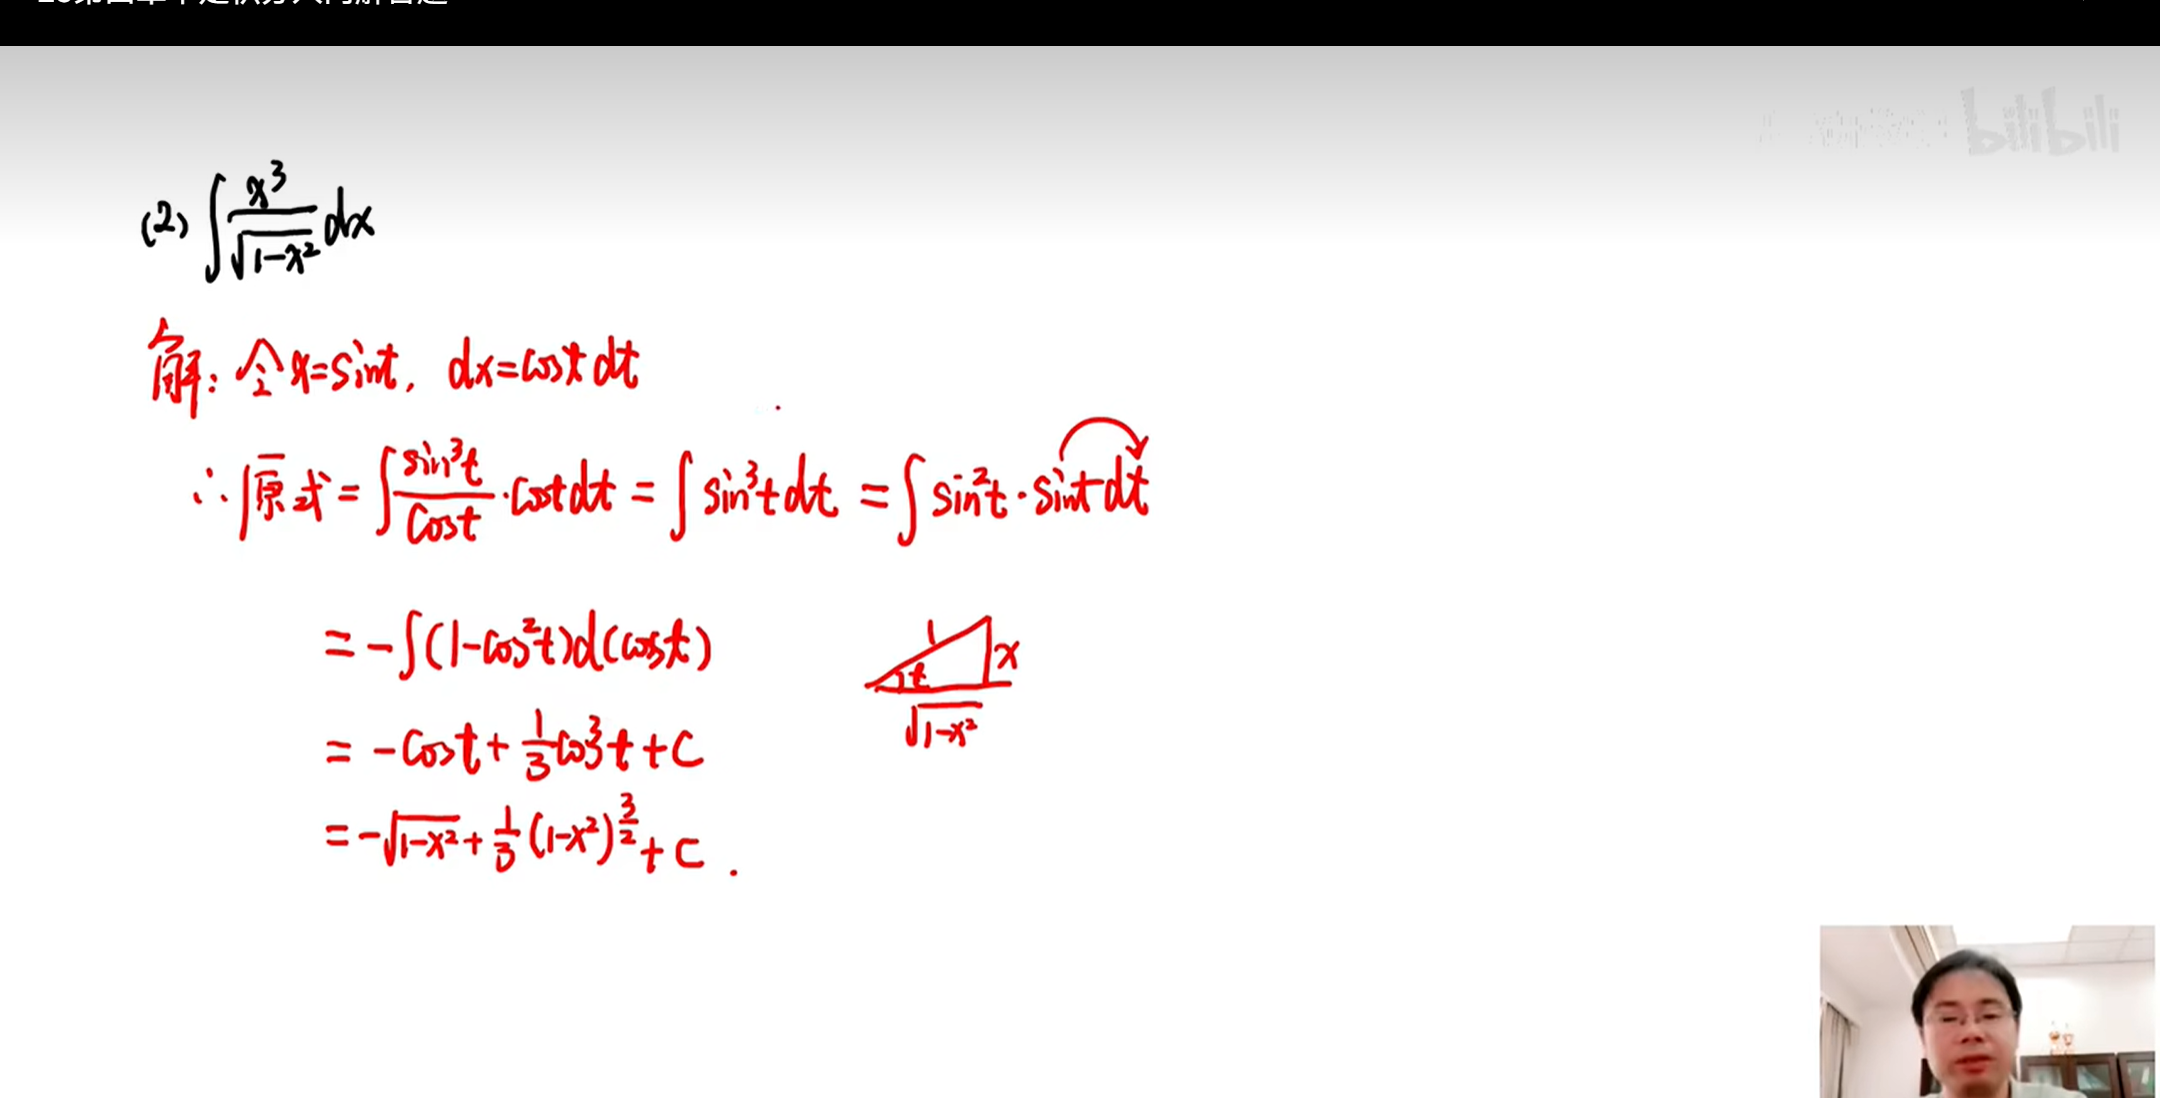 bilibili
(2) ∫ x³/√(1-x²) dx
解: 令 x=sint, dx=cost dt
∴ 原式 = ∫ sin³t/cost · cost dt = ∫ sin³t dt = ∫ sin²t · sint dt
= -∫(1-cos²t)d(cost)
1
x
t
√(1-x²)
= -cost + 1/3 cos³t + C
= -√(1-x²) + 1/3 (1-x²)^(3/2) + C .